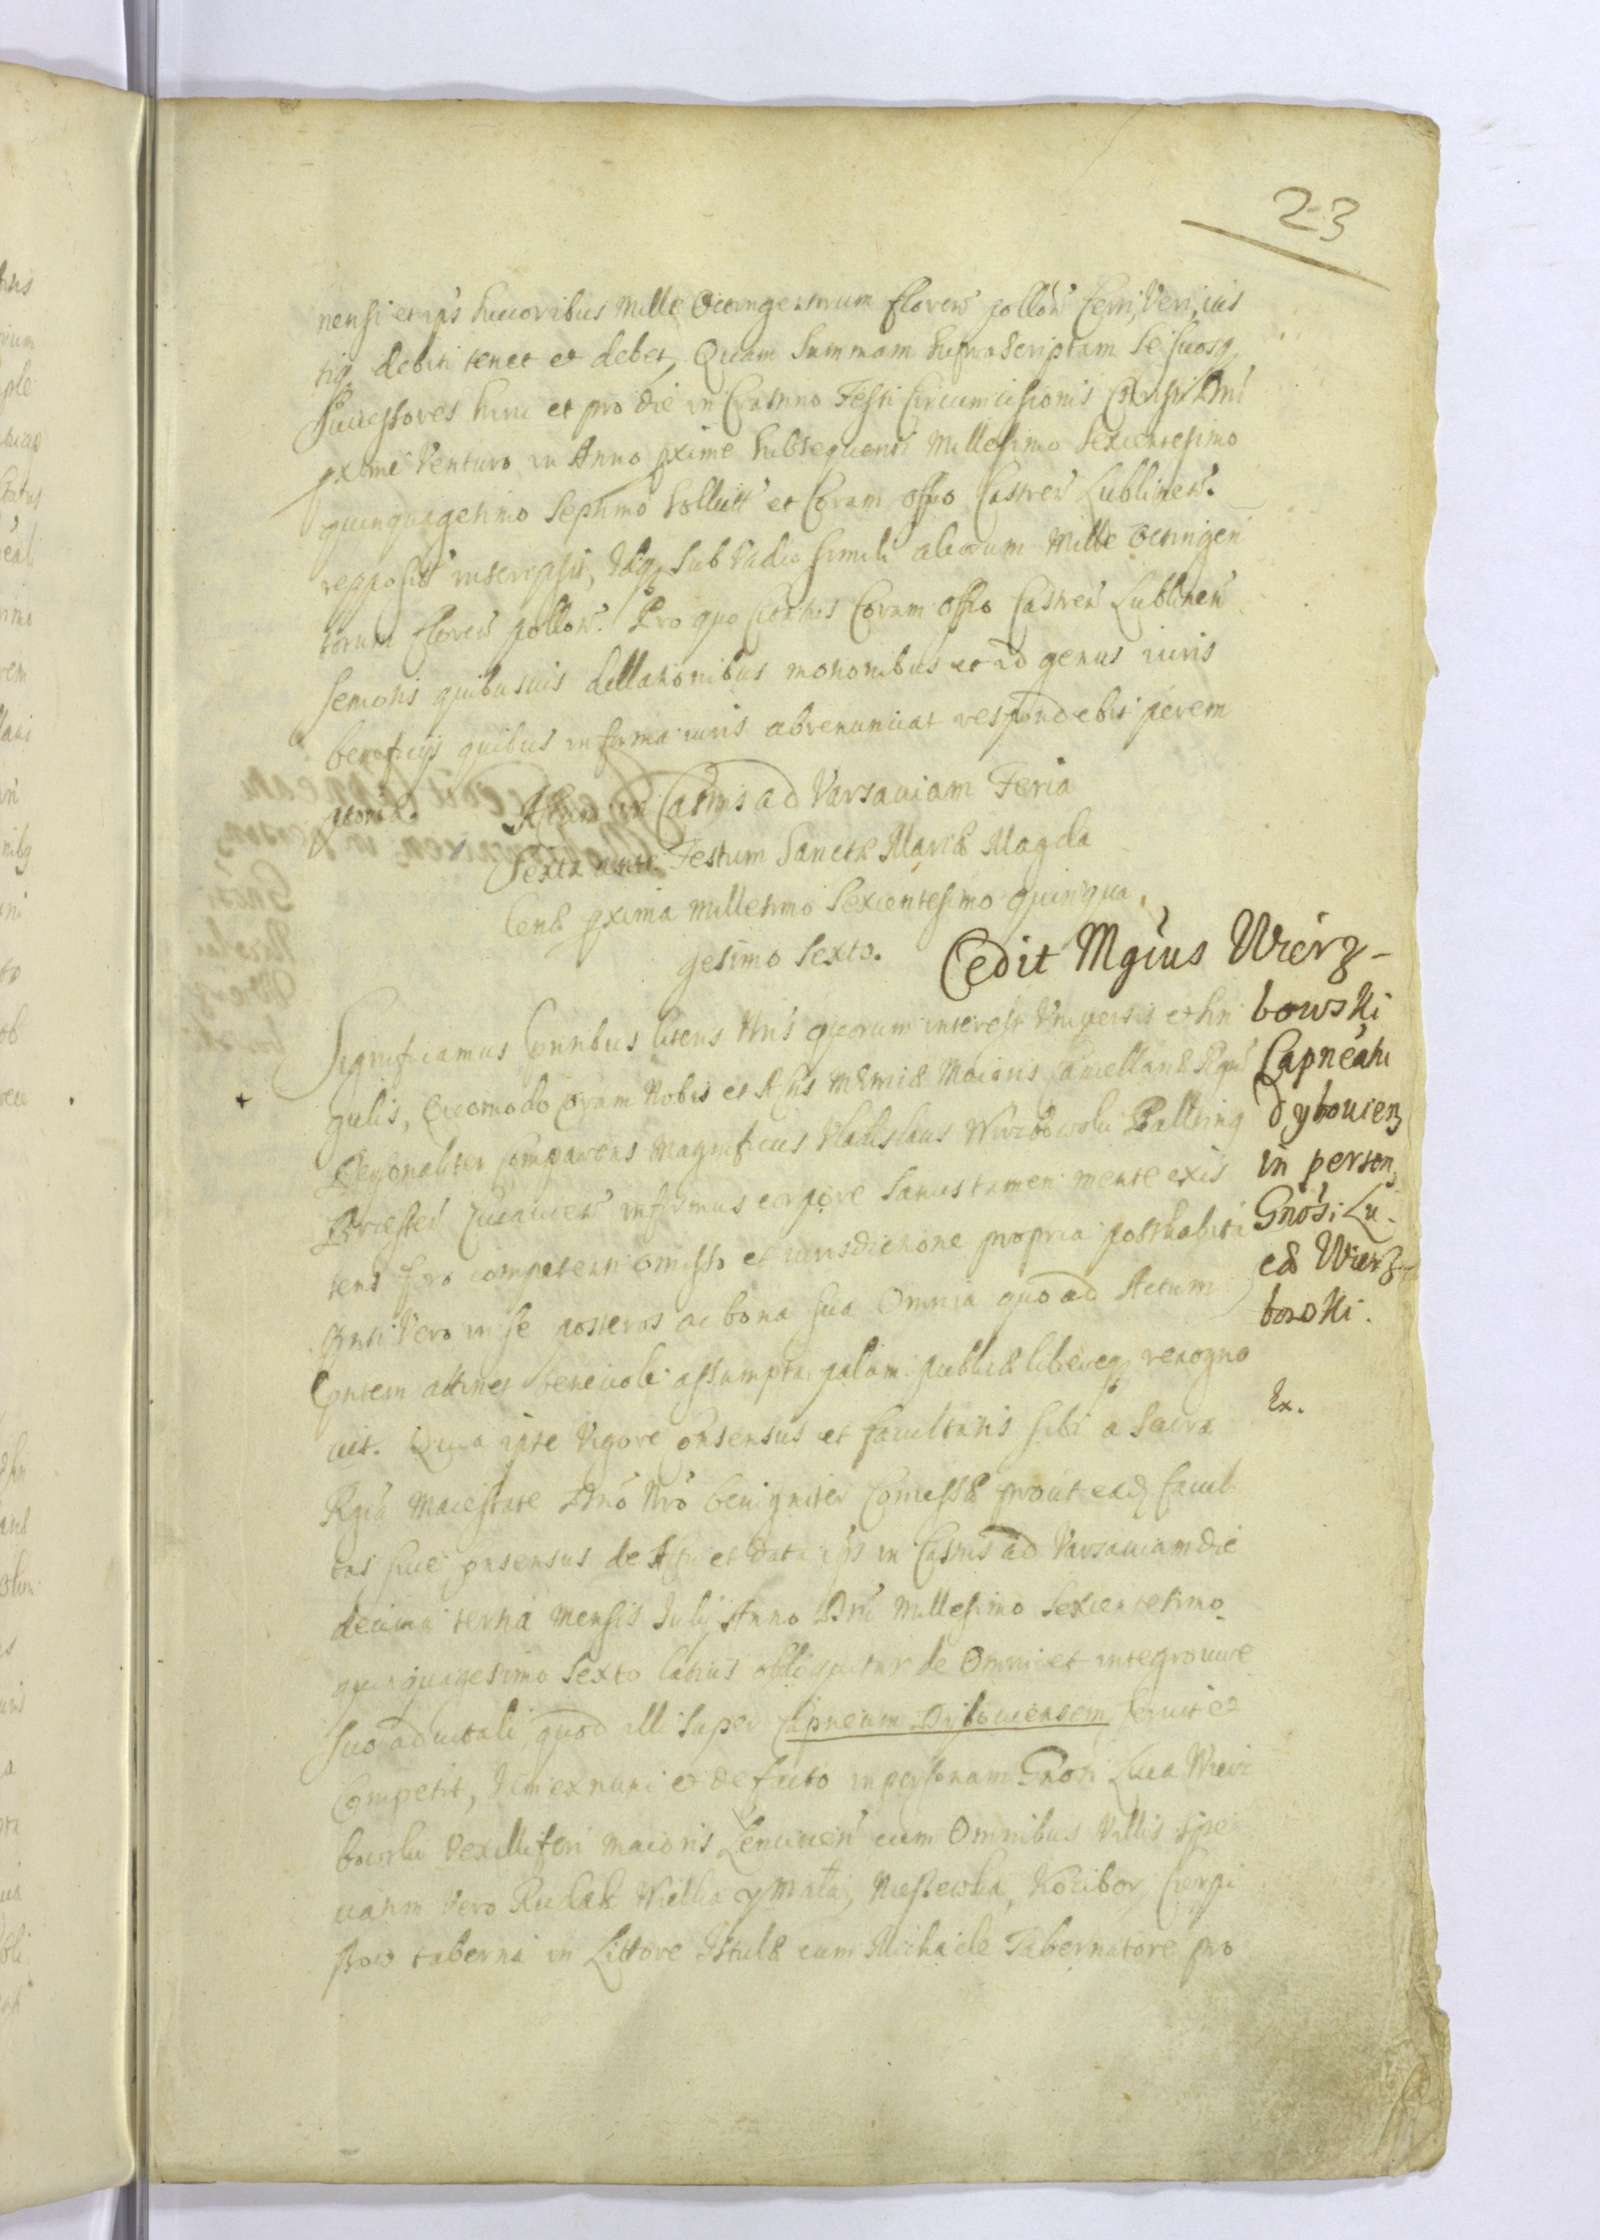 23
nensi et ips Succoribus Mille Octingentorum floren pollon Certi, Veri, ius
tiq debiti tenet et debet, Quam Summam Suprascriptam Se Suosq
Successores hinc et pro die in Crastino Festi Circumcisionis Christi Dni
pxime Venturo in Anno pxime Subsequenti Millesimo Sexcentesimo
quinquagesimo Septimo Solvit et Coram Offo Castren Lublinen.
inscripsit, Idq Sub Vadio Simili aliorum Mille Octingen
torum floren pollon. Pro quo Citatus Coram Offo Castren Lublinen
Semotis quibusuis dillationibus motionibus et id genus iuris
beneficijs quibus in forma iuris abrenuntiat respondebit perem
ptorie.
Actum in Castris ad Varsauiam Feria
Sexta ante Festum Sanctæ Mariæ Magda
lenæ pxima Millesimo Sexcentesimo quinqua
gesimo Sexto.
Cedit Mgcus Wierz-
bowski
Capneati
Dybouien
in person
Gnosi Lu-
cæ Wierz-
bowski.
Ex.
Significamus pntibus literis Nris quorum interest Vniversis et Sin
gulis, Quomodo Coram Nobis et Actis Metricæ Maioris Cancellariæ Regni
Personaliter comparens Magnificus Vladislaus Wierzbowski Pallatinq
Brzesten Cuiauien infirmus corpore Sanus tamen mente exis
tens foro competenti omisso et iurisdictione propria posthabita
pnti Vero in se posteros ac bona Sua Omnia quo ad Actum
pntem attinet beneuole assumpta, palam publice libereq recogno
uit. Quia ipse Vigore Consensus et facultatis Sibi a Sacra
Regia Maiestate Dno Nro benigniter Concessæ prout eadq facul
tas Siue Consensus de Actu et data ips in Castris ad Varsauiam die
decima tertia mensis Julij Anno Dni Millesimo Sexcentesimo
quinquagesimo Sexto latius obloquitur de Omni et integro iure
Suo aduitali quod illi Super Capneam Dybouiensem Seruit et
Competit, Vti ex nunc et de facto in personam Gnosi Lucæ Wierz
bowski Vexilliferi Maioris Lencicien cum Omnibus Villis Spe
ciatim Vero Rudak Wielka y Mała, Nieszewka, Kocibor Cierpi
szow taberna in Littore Istulæ cum Michaele Tabernatore pro